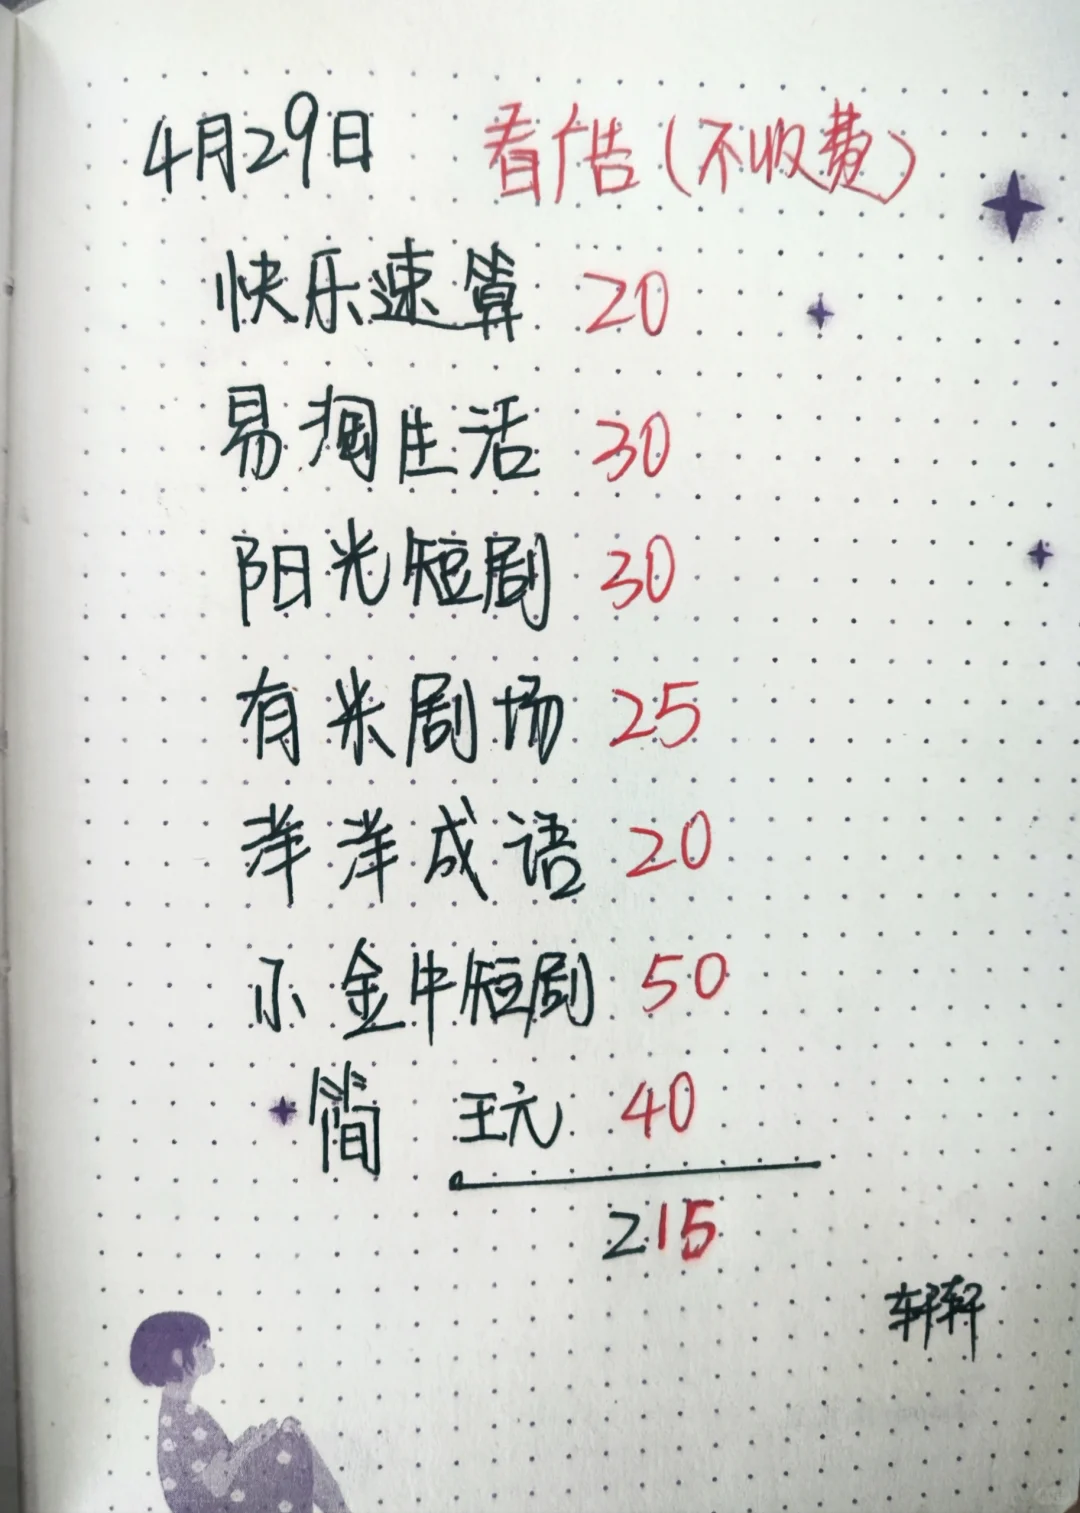 4月29日 看广告(不收费)
快乐速算 20
易淘生活 30
阳光短剧 30
有米剧场 25
洋洋成语 20
小金牛短剧 50
简 王元 40
215
轩轩